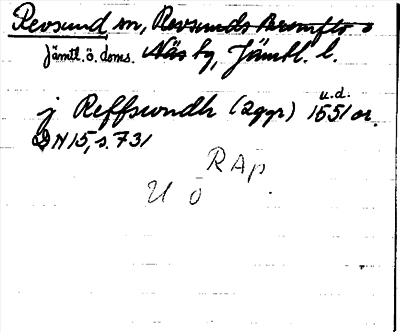 Revsund sn, Revsunds Brunflo o
Jämtl. ö. doms. Näs tg, Jämtl. l.
u.d.
j Reffswndh (2 ggr) 1551 or.
DN 15, s. 731
RAp
U o